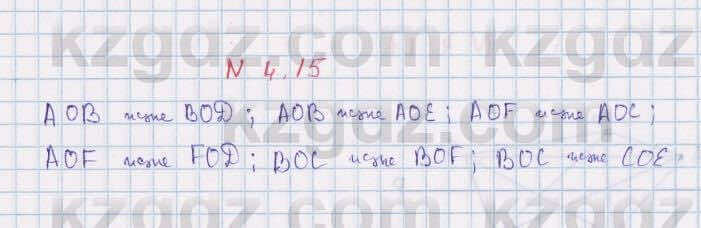 kzgdz.com kzgdz
N 4.15
AOB және BOD; AOB және AOE; AOF және AOC;
kzgdz.com
AOF және FOD; BOC және BOF; BOC және COE
kzgdz.com kzgdz